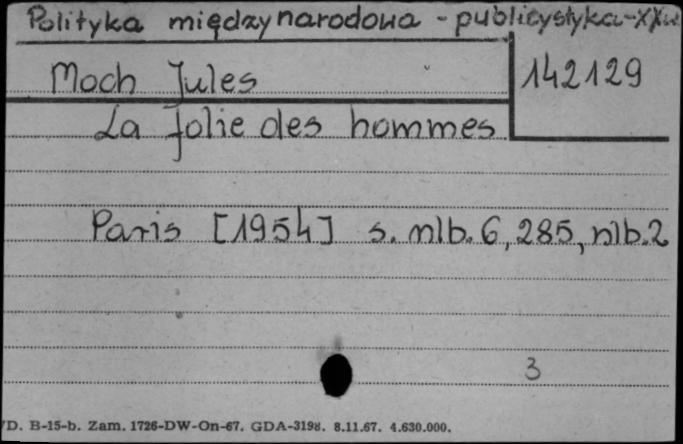 Polityka międzynarodowa - publicystyka - XX w.
Moch Jules
142129
La folie des hommes
Paris [1954] s. nlb. 6, 285, nlb. 2
3
D. B-15-b. Zam. 1726-DW-On-67. GDA-3198. 8.11.67. 4.630.000.